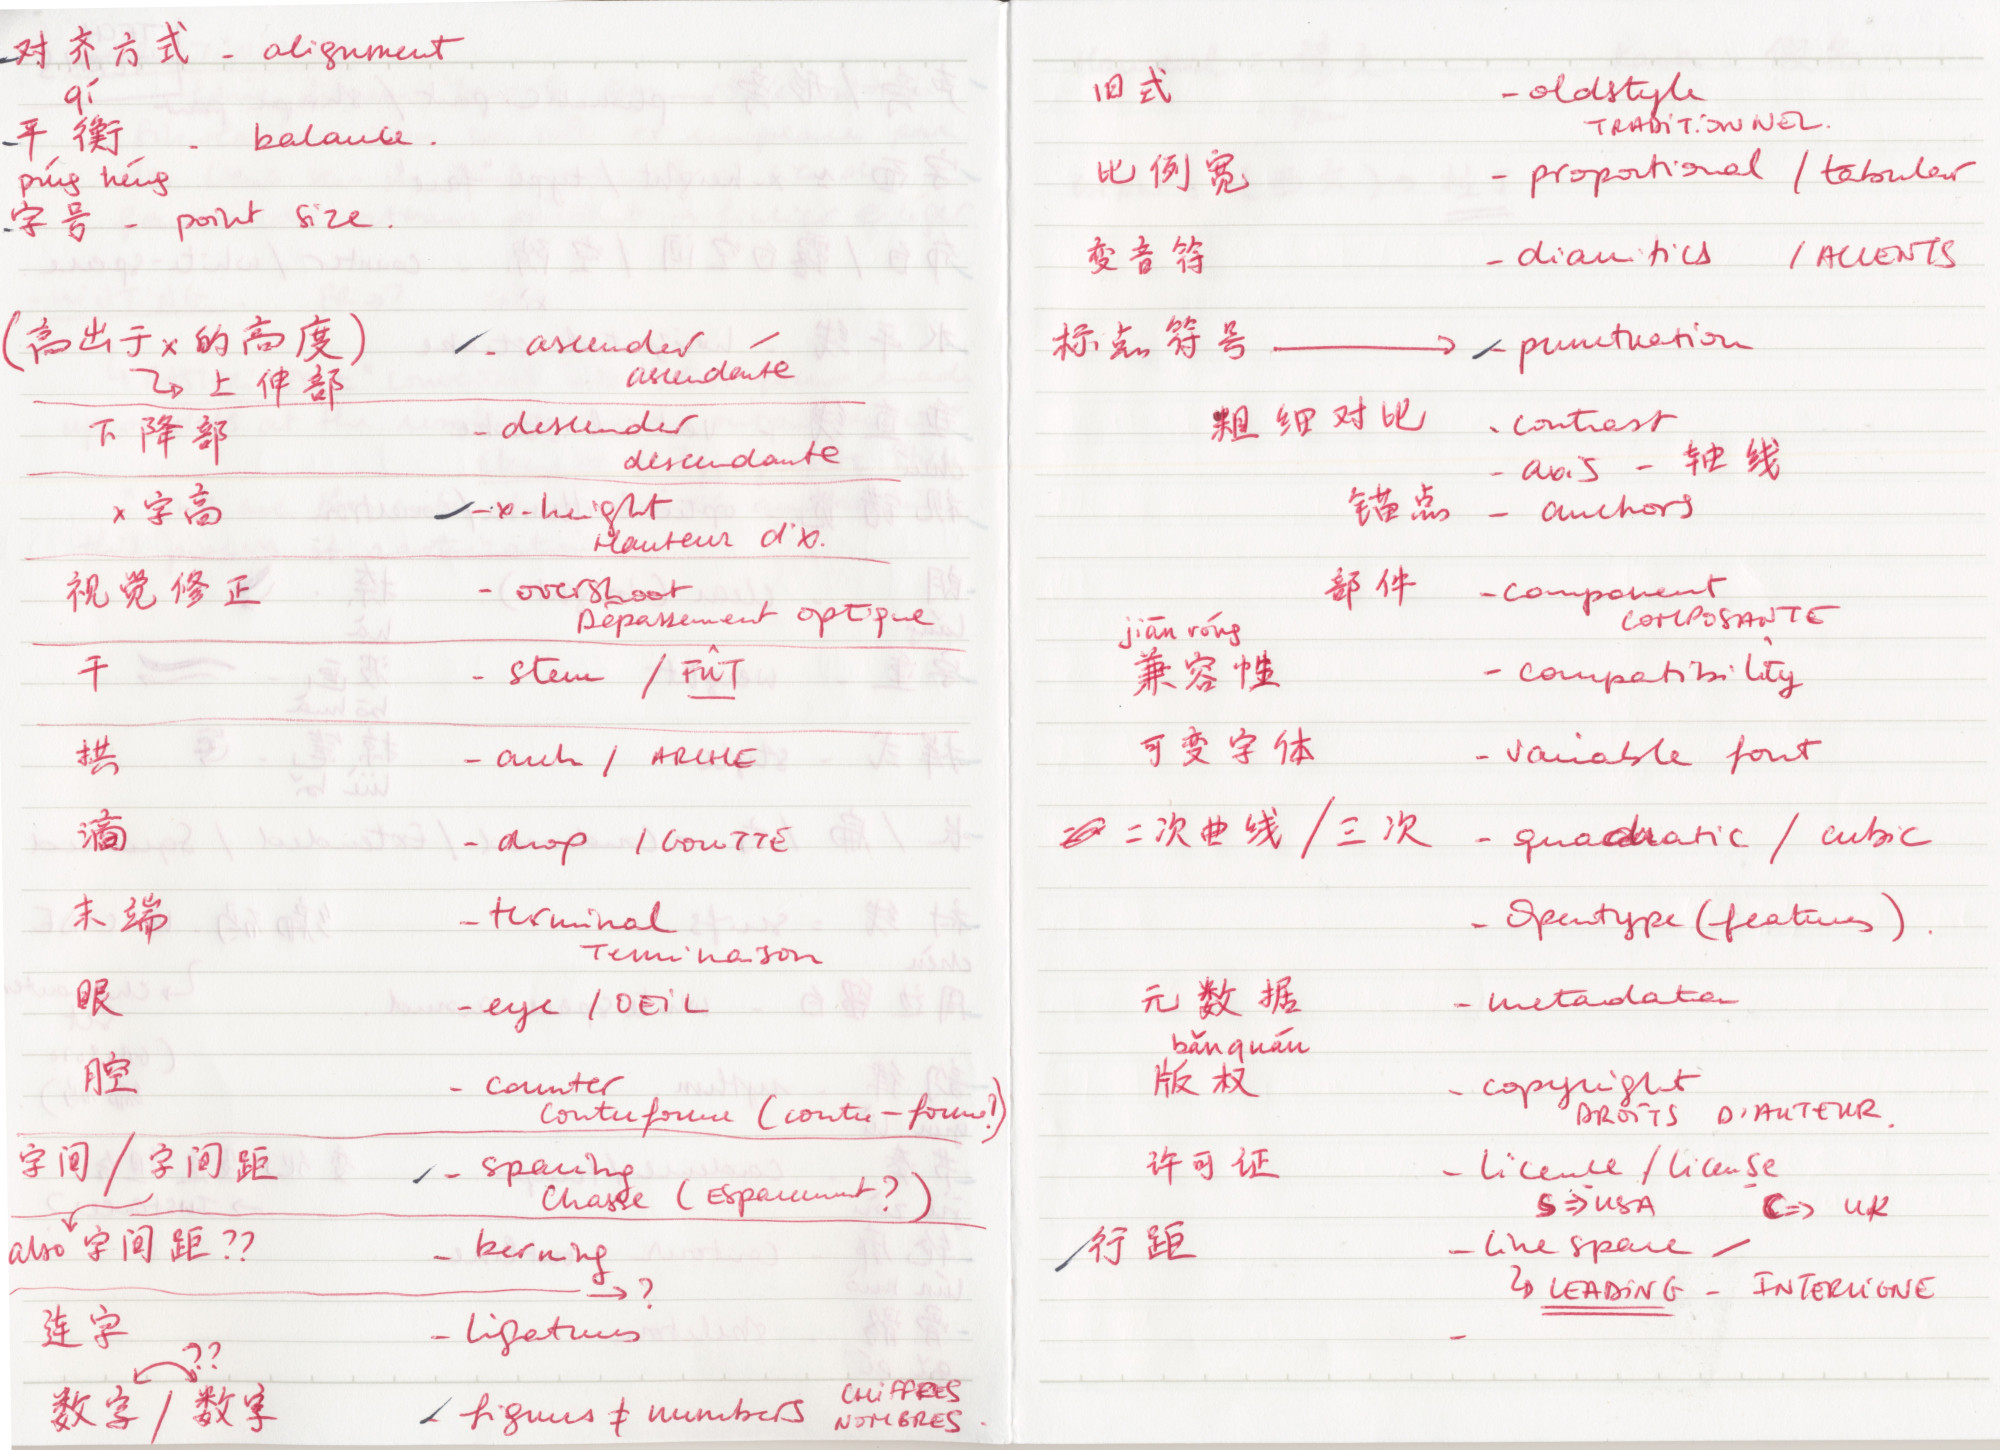 对齐方式 - alignment
qí
平衡 - balance.
píng héng
字号 - point size.
(高出于x的高度) - ascender
上伸部 ascendante
下降部 - descender
descendante
x字高 - x-height
Hauteur d'x.
视觉修正 - overshoot
Dépassement optique
干 - stem / FÛT
拱 - arch / ARCHE
滴 - drop / GOUTTE
末端 - terminal
Terminaison
眼 - eye / OEiL
腔 - counter
Contreforme (contre-forme?)
字间 / 字间距 - spacing
Chasse (Espacement?)
also 字间距?? - kerning
→ ?
连字 - ligatures
??
数字 / 数字 - figures ≠ numbers CHiFFRES
NOMBRES.
旧式 - oldstyle
TRADiTiONNEL.
比例宽 - proportional / tabular
变音符 - diacritics / ACCENTS
标点符号 → - punctuation
粗细对比 - contrast
- axis - 轴线
锚点 - anchors
部件 - component
COMPOSANTE
jiān róng
兼容性 - compatibility
可变字体 - variable font
二次曲线 / 三次 - quadratic / cubic
- Opentype (features).
元数据 - metadata
bǎnquán
版权 - copyright
DROiTS D'AUTEUR.
许可证 - licence / license
S => USA C => UK
行距 - line space
LEADiNG - INTERLiGNE
-